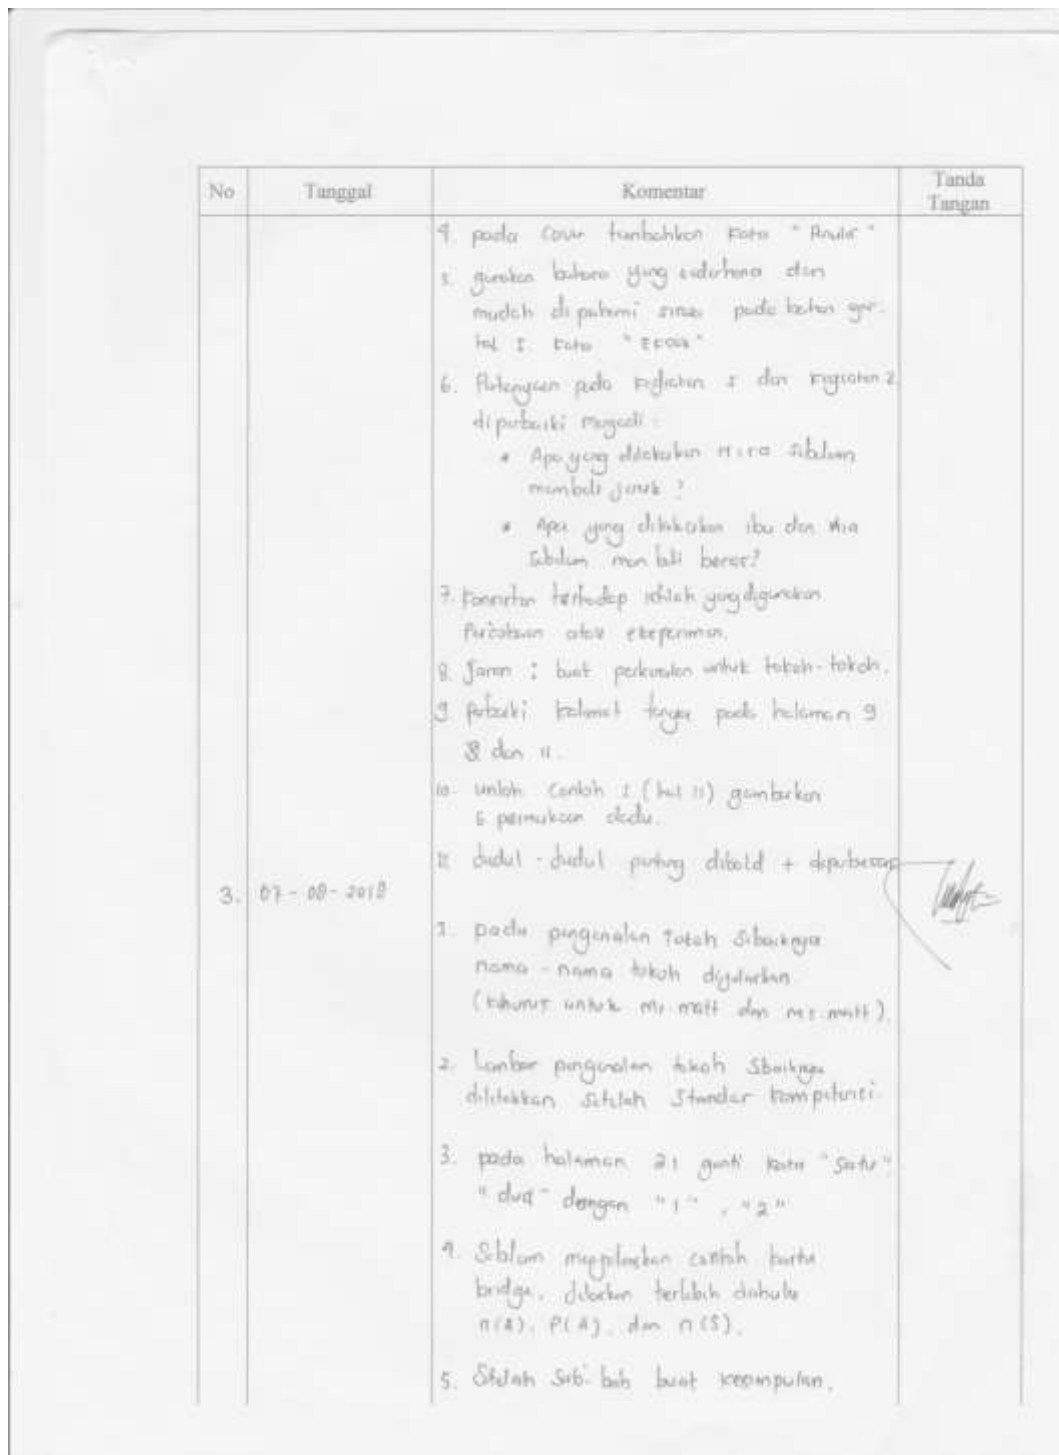 No Tanggal Komentar Tanda Tangan
4. pada Cover tambahkan kata "
5. gunakan bahasa yang sederhana dan
mudah dipahami siswa pada bahan ajar.
hal 1 kata
6. pada kegiatan 1 dan kegiatan 2
diperbaiki menjadi :
* Apa yang dilakukan sebelum
membeli jeruk ?
* Apa yang dilakukan ibu dan
sebelum membeli beras?
7. terhadap istilah yang digunakan
Percobaan atau eksperimen.
8. Saran : buat perkenalan untuk tokoh-tokoh.
9. perbaiki kalimat tanya pada halaman 9
dan 11.
10. untuk Contoh 1 (hal 11) gambarkan
6 permukaan dadu.
11. Judul - judul penting dibold + diperbesar
3. 07-08-2018
1. pada pengenalan tokoh sebaiknya
nama - nama tokoh dijelaskan
(khusus untuk mr matt dan ms matt).
2. Lembar pengenalan tokoh Sebaiknya
diletakkan setelah Standar kompetensi.
3. pada halaman 21 ganti kata "Satu",
"dua" dengan "1", "2"
4. Sebelum menjelaskan contoh kartu
bridge, terlebih dahulu
n(A), P(A), dan n(S).
5. Setelah Sub-bab buat kesimpulan.